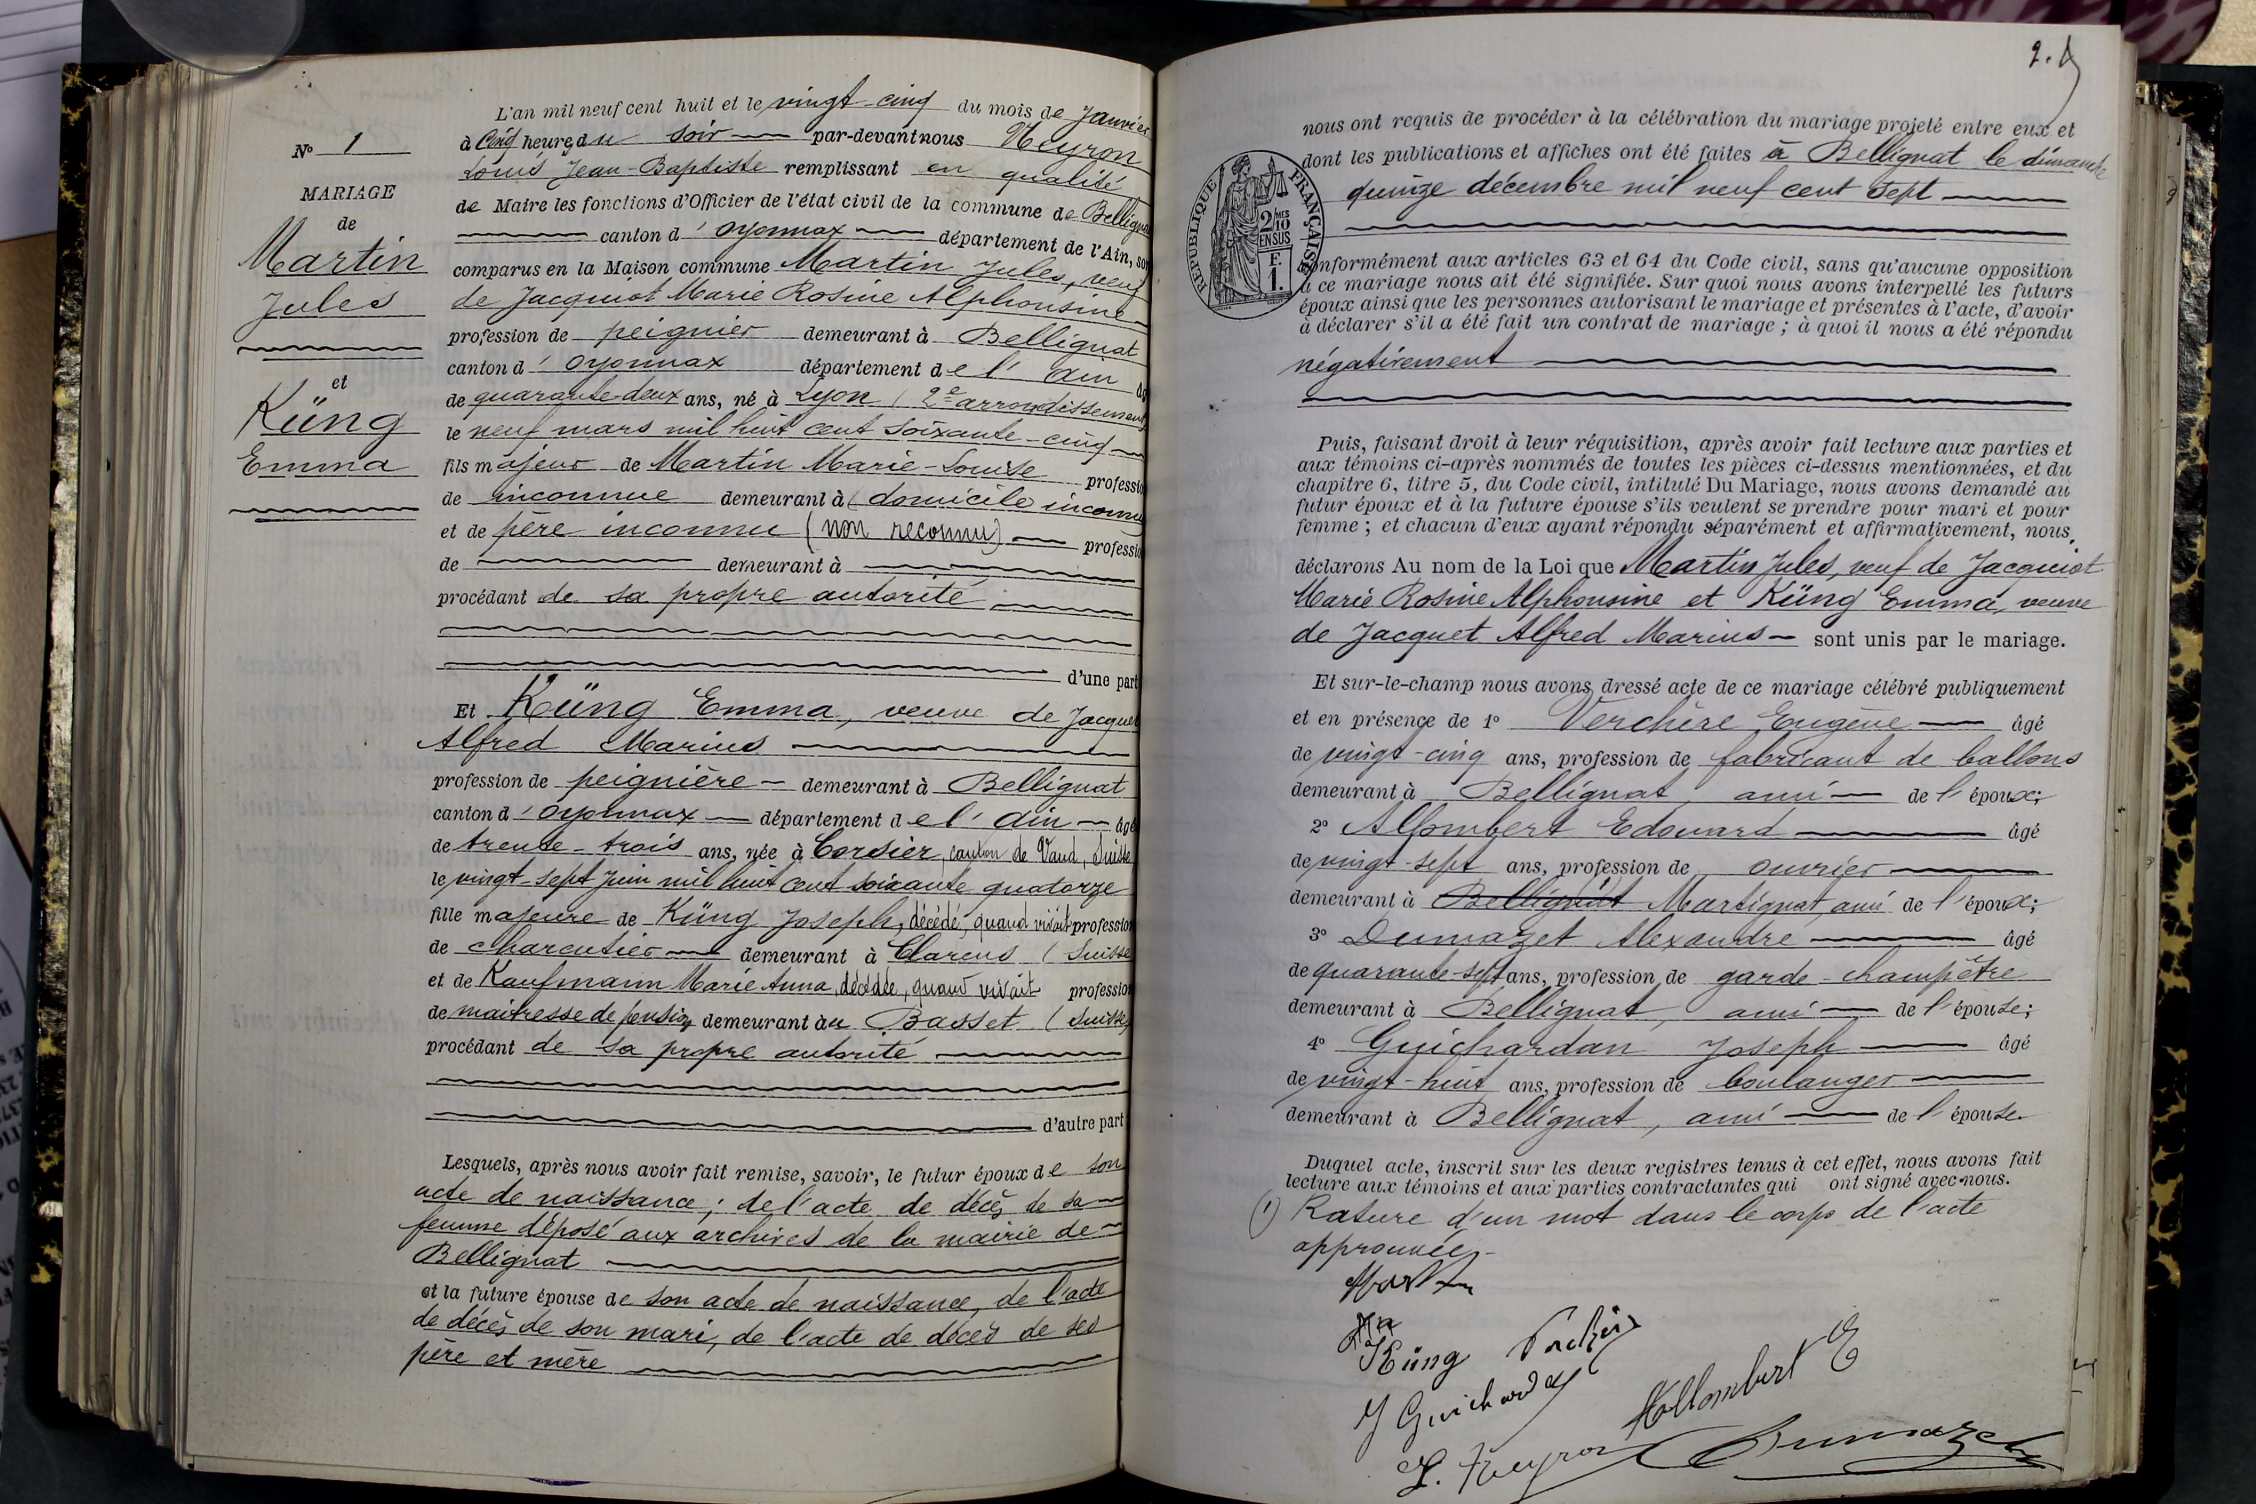 N° 1
MARIAGE
de
Martin
Jules
et
Küng
Emma
L'an mil neuf cent huit et le vingt-cinq du mois de Janvier
à Cinq heures du soir par-devant nous Neyron
Louis Jean-Baptiste remplissant en qualité
de Maire les fonctions d'Officier de l'état civil de la commune de Bellignat
canton d'Oyonnax département de l'Ain, sont
comparus en la Maison commune Martin Jules, veuf
de Jacquiot Marie Rosine Alphonsine
profession de peignier demeurant à Bellignat
canton d'Oyonnax département de l'Ain
de quarante-deux ans, né à Lyon (2e arrondissement)
le neuf mars mil huit cent soixante-cinq
fils majeur de Martin Marie-Louise profession
de inconnue demeurant à (domicile inconnu
et de père inconnu (non reconnu) profession
de demeurant à
procédant de sa propre autorité
d'une part
Et Küng Emma, veuve de Jacquet
Alfred Marius
profession de peignière demeurant à Bellignat
canton d'Oyonnax département de l'Ain âgé
de trente-trois ans, née à Corsier, canton de Vaud, Suisse
le vingt-sept Juin mil huit cent soixante quatorze
fille majeure de Küng Joseph, décédé, quand vivait profession
de charcutier demeurant à Clarens (Suisse
et de Kaufmann Marie Anna, décédée, quand vivait profession
de maitresse de pension demeurant au Basset (Suisse)
procédant de sa propre autorité
d'autre part
Lesquels, après nous avoir fait remise, savoir, le futur époux de son
acte de naissance ; de l'acte de décès de sa
femme déposé aux archives de la mairie de
Bellignat
et la future épouse de son acte de naissance, de l'acte
de décès de son mari, de l'acte de décès de ses
père et mère
2.
nous ont requis de procéder à la célébration du mariage projeté entre eux et
dont les publications et affiches ont été faites à Bellignat le dimanche
quinze décembre mil neuf cent sept
RÉPUBLIQUE FRANÇAISE
2/10 MES
EN SUS
F.
1.
conformément aux articles 63 et 64 du Code civil, sans qu'aucune opposition
à ce mariage nous ait été signifiée. Sur quoi nous avons interpellé les futurs
époux ainsi que les personnes autorisant le mariage et présentes à l'acte, d'avoir
à déclarer s'il a été fait un contrat de mariage ; à quoi il nous a été répondu
négativement
Puis, faisant droit à leur réquisition, après avoir fait lecture aux parties et
aux témoins ci-après nommés de toutes les pièces ci-dessus mentionnées, et du
chapitre 6, titre 5, du Code civil, intitulé Du Mariage, nous avons demandé au
futur époux et à la future épouse s'ils veulent se prendre pour mari et pour
femme ; et chacun d'eux ayant répondu séparément et affirmativement, nous
déclarons Au nom de la Loi que Martin Jules, veuf de Jacquiot
Marie Rosine Alphonsine et Küng Emma, veuve
de Jacquet Alfred Marius sont unis par le mariage.
Et sur-le-champ nous avons dressé acte de ce mariage célébré publiquement
et en présence de 1° Verchère Eugène âgé
de vingt-cinq ans, profession de fabricant de ballons
demeurant à Bellignat, ami de l'époux;
2° Allombert Edouard âgé
de vingt-sept ans, profession de ouvrier
demeurant à Bellignat (1) Martignat, ami de l'époux;
3° Dumazet Alexandre âgé
de quarante-sept ans, profession de garde-champêtre
demeurant à Bellignat, ami de l'épouse;
4° Guichardan Joseph âgé
de vingt-huit ans, profession de boulanger
demeurant à Bellignat, ami de l'épouse.
Duquel acte, inscrit sur les deux registres tenus à cet effet, nous avons fait
lecture aux témoins et aux parties contractantes qui ont signé avec nous.
(1) Rature d'un mot dans le corps de l'acte
approuvée.
Martin
Küng
J Guichardan
Allombert E
L. Neyron
Dumazet